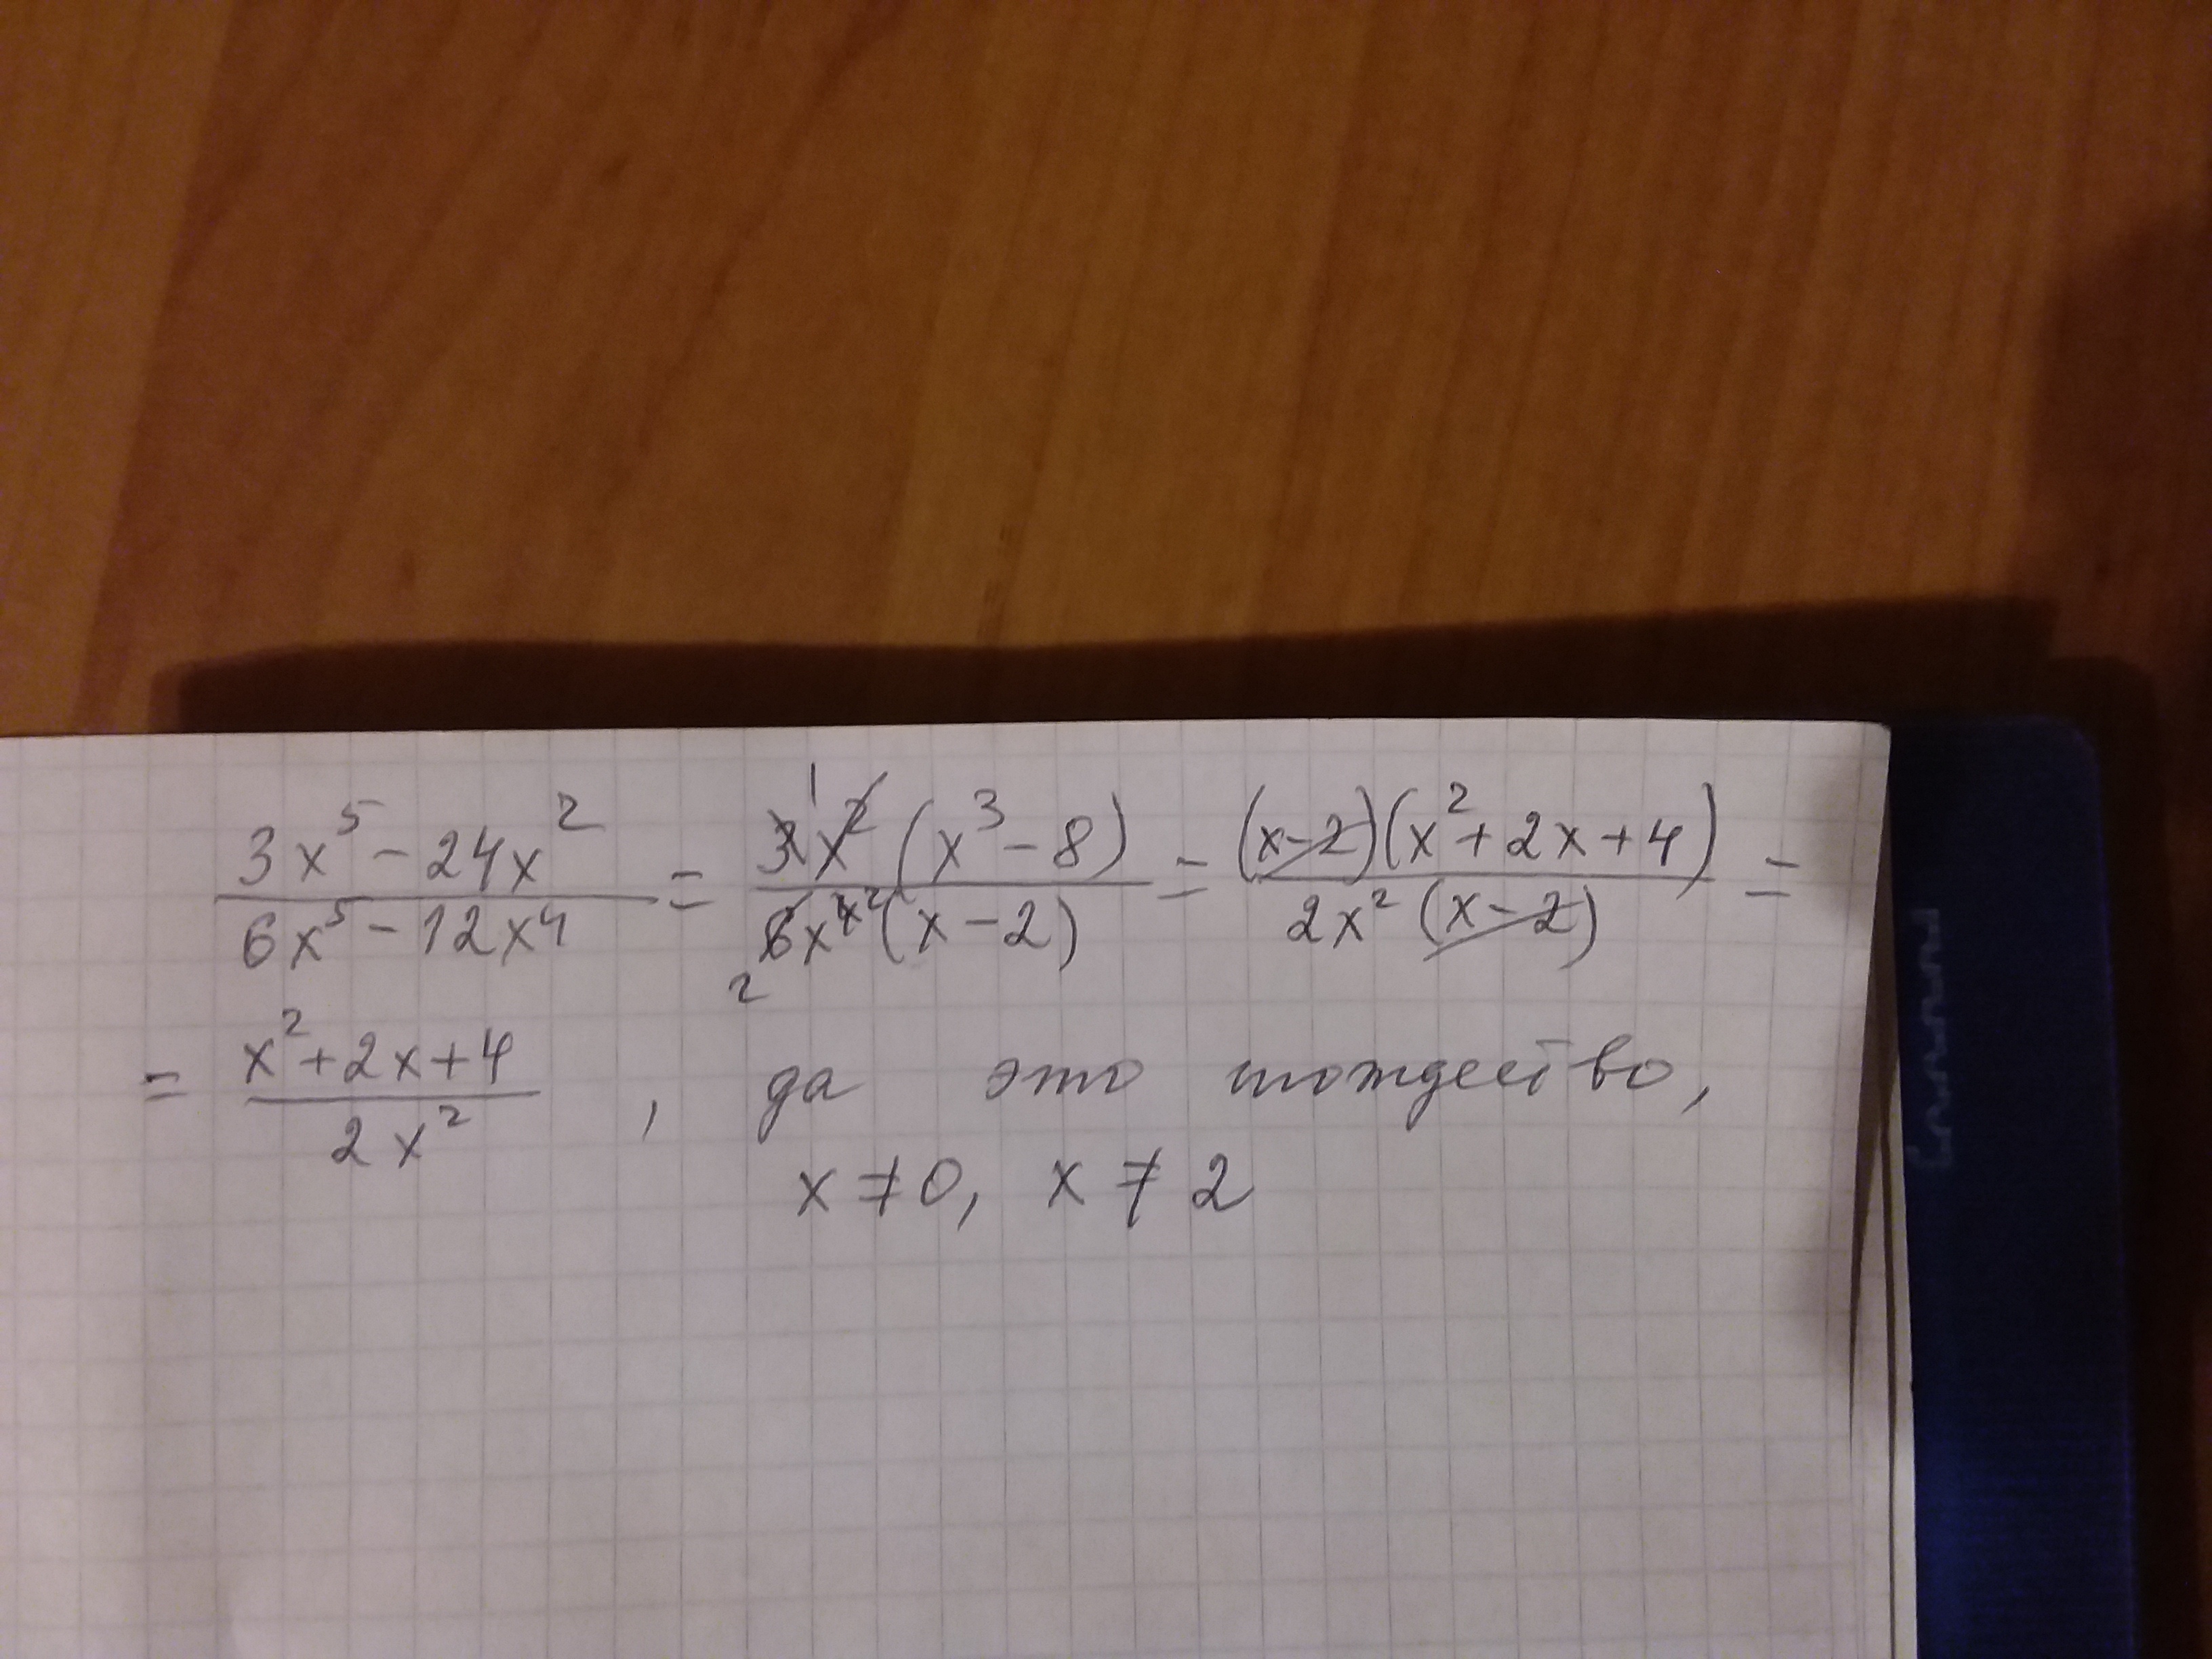 (3x⁵ - 24x²)/(6x⁵ - 12x⁴) = (3x²(x³ - 8))/(6x⁴(x - 2)) = ((x-2)(x² + 2x + 4))/(2x²(x-2)) =
= (x² + 2x + 4)/(2x²) , да это тождество,
x ≠ 0, x ≠ 2